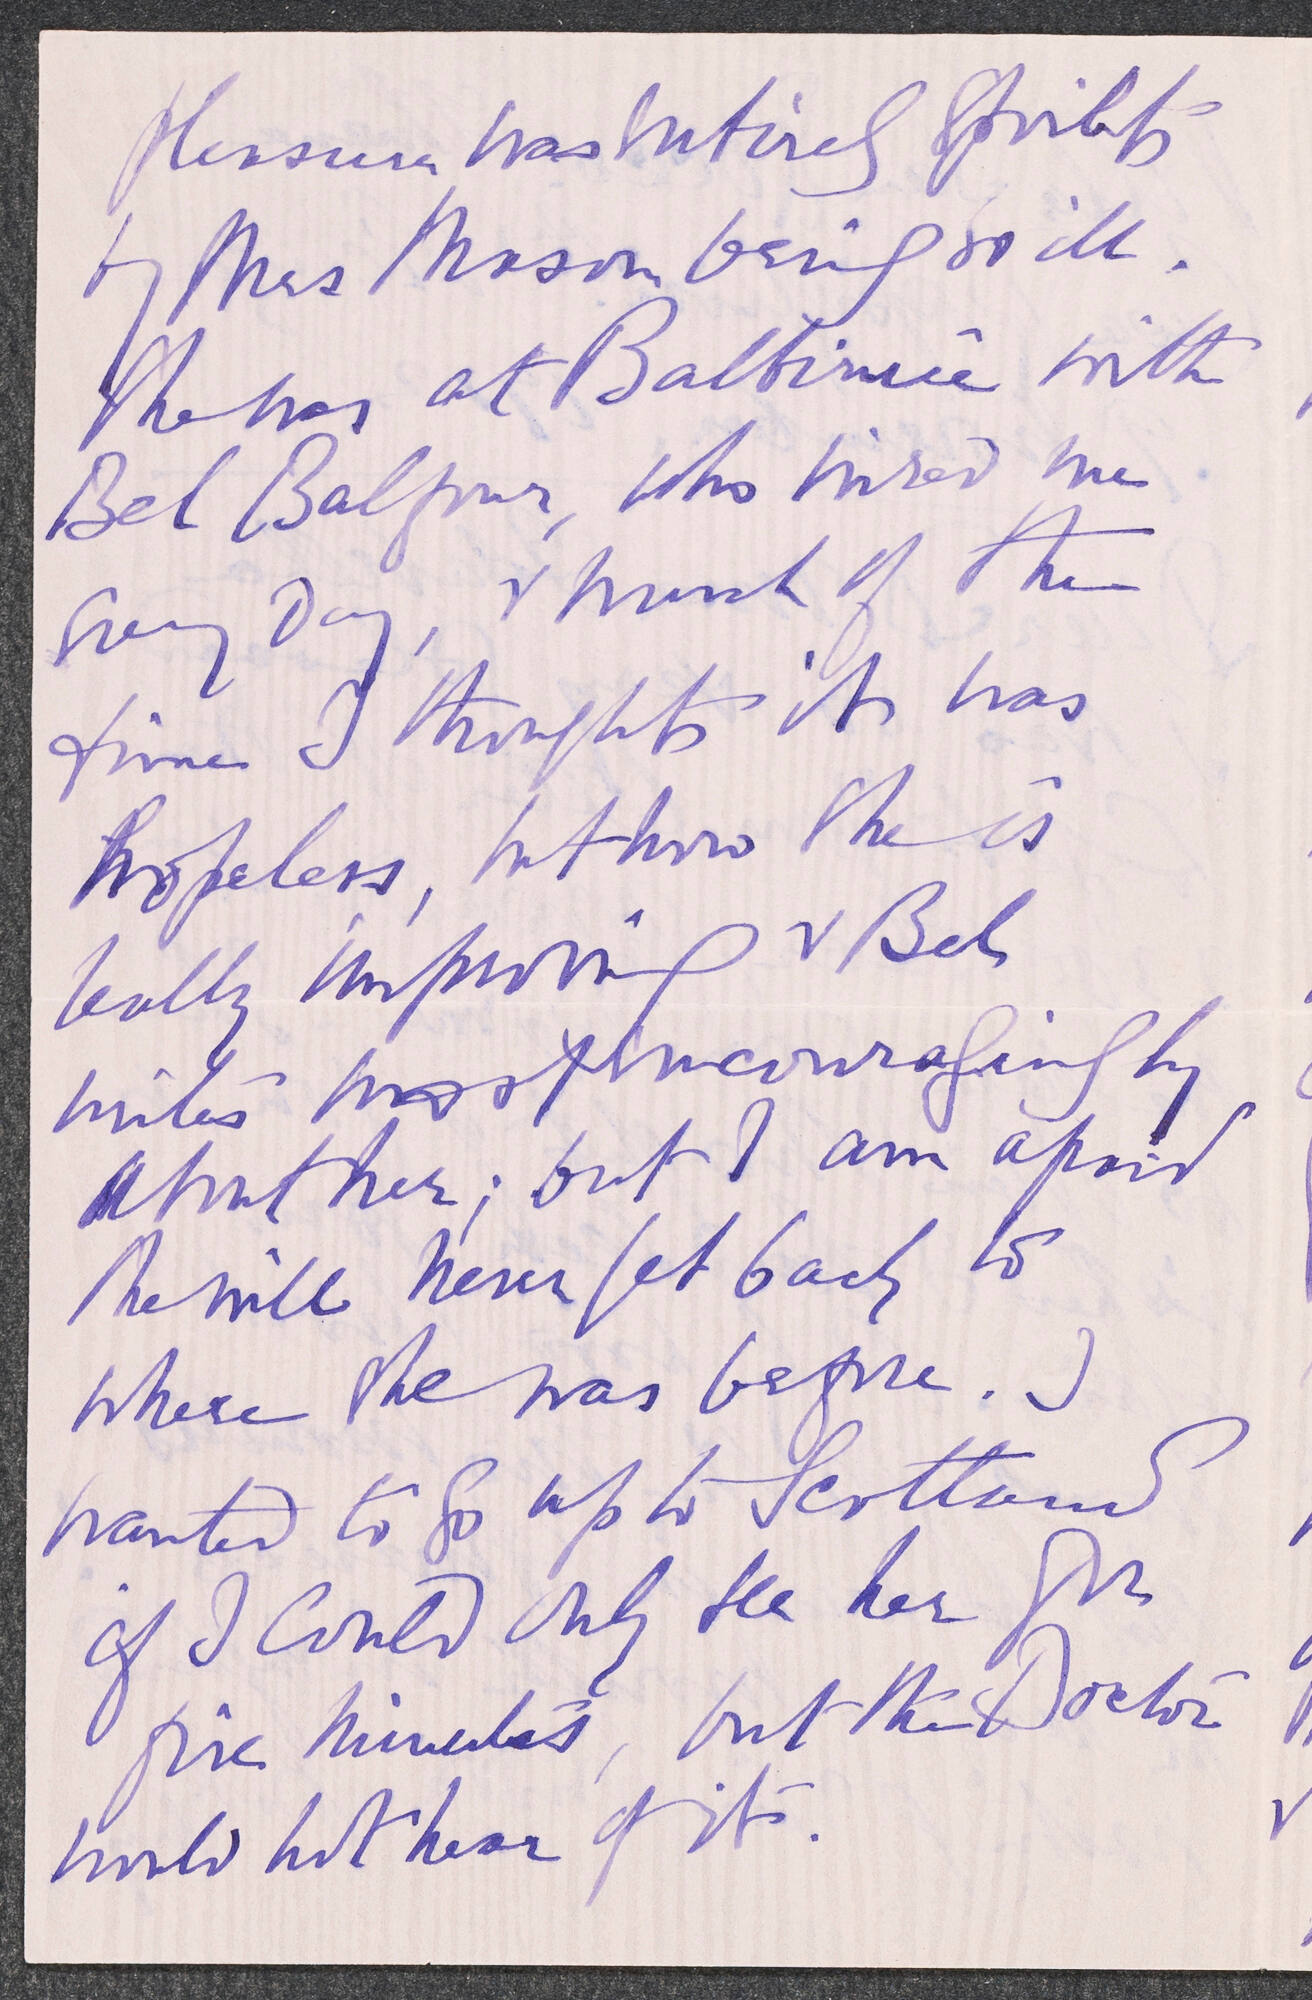 pleasure was entirely spoilt
by Mrs Mason being so ill.
She was at Balbirnie with
Bel Balfour, who wired me
every day, & much of the
time I thought it was
hopeless, but now she is
really improving & Bel
writes most encouragingly
about her; but I am afraid
she will never get back to
where she was before. I
wanted to go up to Scotland
if I could only see her for
five minutes, but the Doctor
would not hear of it.